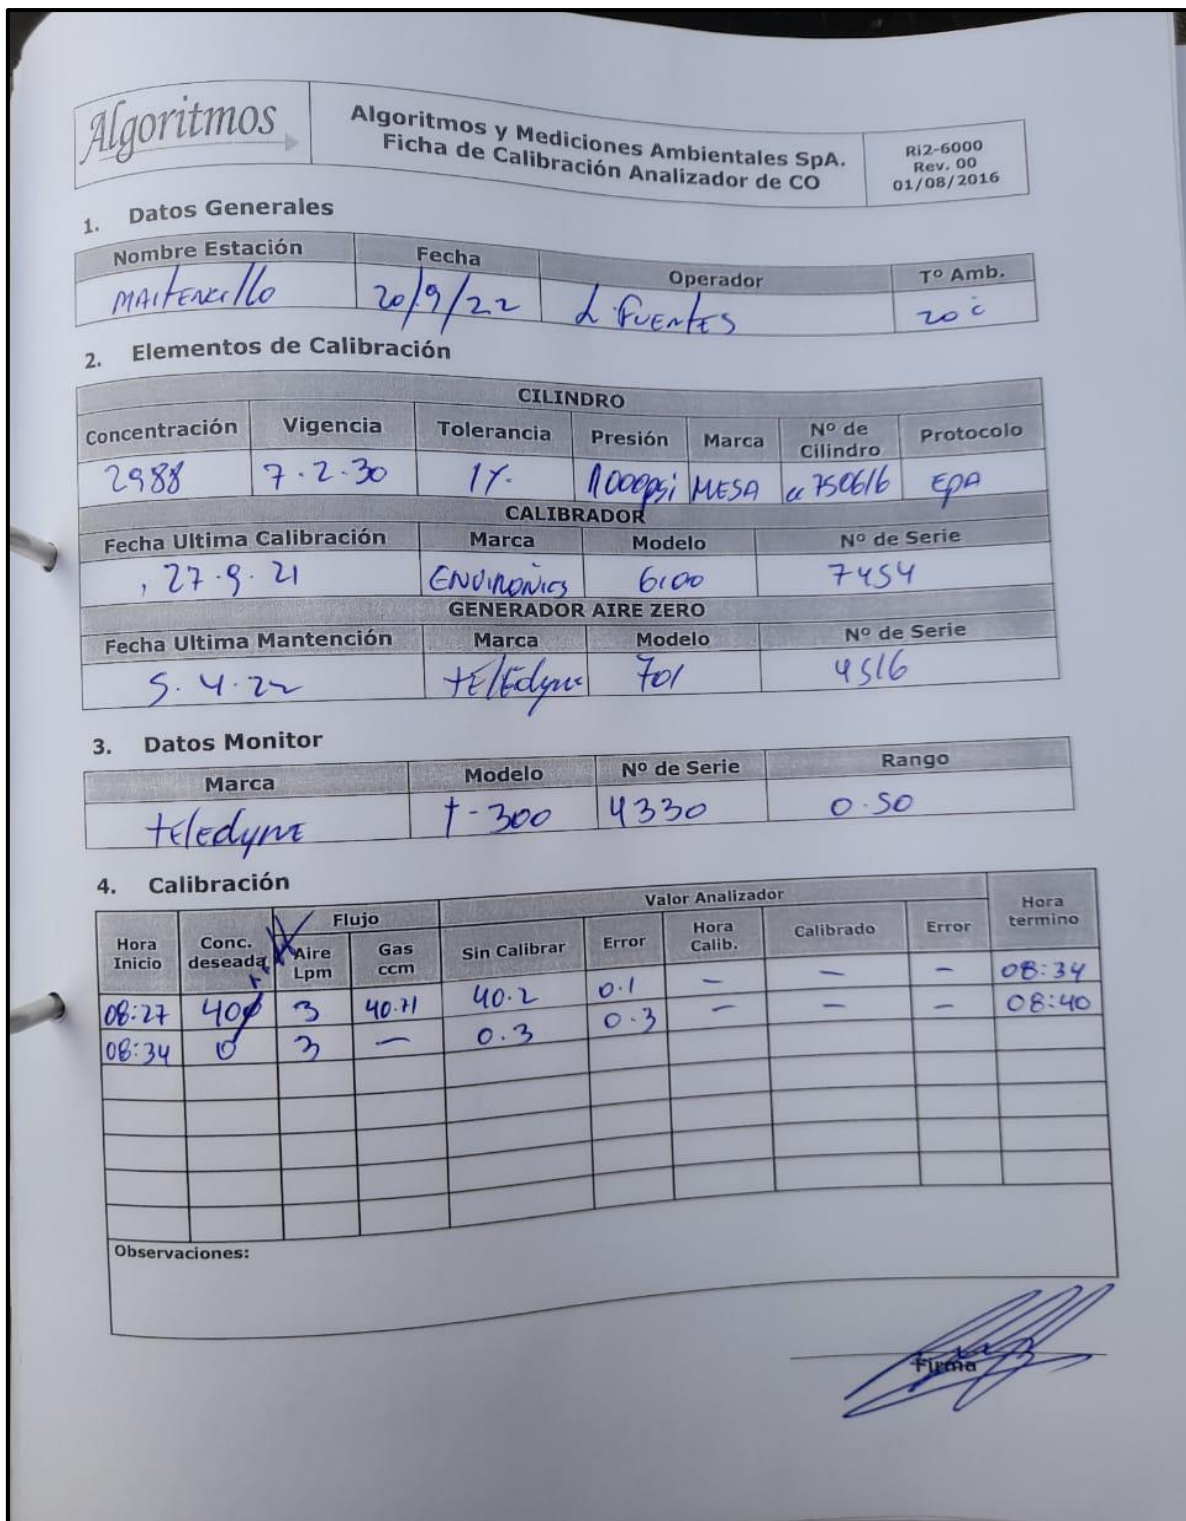 Algoritmos
Algoritmos y Mediciones Ambientales SpA.
Ficha de Calibración Analizador de CO
Ri2-6000
Rev. 00
01/08/2016
1. Datos Generales
Nombre Estación Fecha Operador Tº Amb.
MAITENCILLO 20/9/22 L. FUENTES 20 c
2. Elementos de Calibración
CILINDRO
Concentración Vigencia Tolerancia Presión Marca Nº de Cilindro Protocolo
2988 7.2.30 1%. 1000psi MESA cc 750616 EPA
CALIBRADOR
Fecha Ultima Calibración Marca Modelo Nº de Serie
27.9.21 ENVIRONICS 6100 7454
GENERADOR AIRE ZERO
Fecha Ultima Mantención Marca Modelo Nº de Serie
5.4.22 tElEdyne 701 4516
3. Datos Monitor
Marca Modelo Nº de Serie Rango
tEledyne t-300 4330 0.50
4. Calibración
Flujo Valor Analizador
Hora Inicio Conc. deseada Aire Lpm Gas ccm Sin Calibrar Error Hora Calib. Calibrado Error Hora termino
08:27 40 3 40.71 40.2 0.1 — — — 08:34
08:34 0 3 — 0.3 0.3 — — — 08:40
Observaciones:
Firma